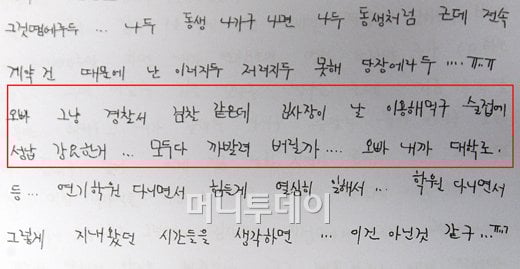 그것땜에두두 ... 나두 동생 나가구 나면 나두 동생처럼 근데 전속
계약 건 때문에 난 이러지두 저러지두 못해 당장에라두 .... ㅠ.ㅠ
오빠 그냥 경찰서 검찰 같은데 김사장이 날 이용해먹구 술접에
성납 강요한거 ... 모두다 까발려 버릴까 .... 오빠 내까 대학로.
등... 연기학원 다니면서 힘들게 열심히 일해서 ... 학원 다니면서
머니투데이
그렇게 지내왔던 시간들을 생각하면 ... 이건 아닌것 같구 ...ㅠ.ㅠ